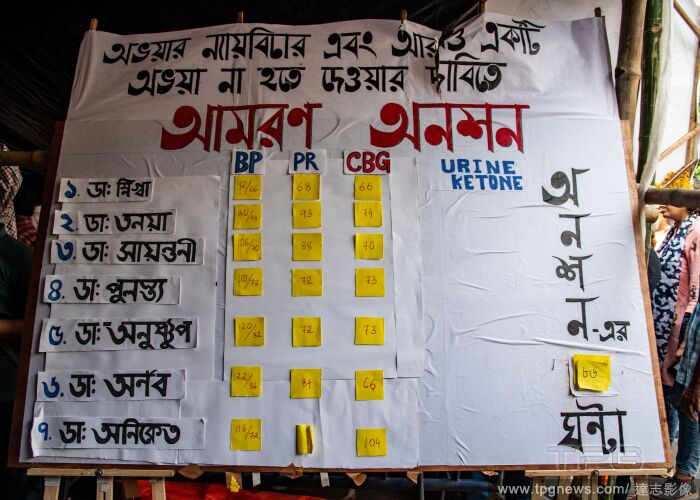 অভয়ার ন্যায়বিচার এবং আরও একটি
অভয়া না হতে দেওয়ার দাবিতে
আমরণ অনশন
BP PR CBG URINE KETONE
১. ডাঃ স্নিগ্ধা 92/66 68 66
২. ডাঃ তনয়া 93 79
৩. ডাঃ সায়ন্তনী 106/70 88 70
৪. ডাঃ পুলস্ত্য 110/78 72 73
৫. ডাঃ অনুষ্টুপ 120/82 72 73
৬. ডাঃ অর্ণব 122/86 84 66
৭. ডাঃ অনিকেত 116/72 104
অনশন-এর
৮৬
ঘন্টা
TPG
www.tpgnews.com/ 達志影像